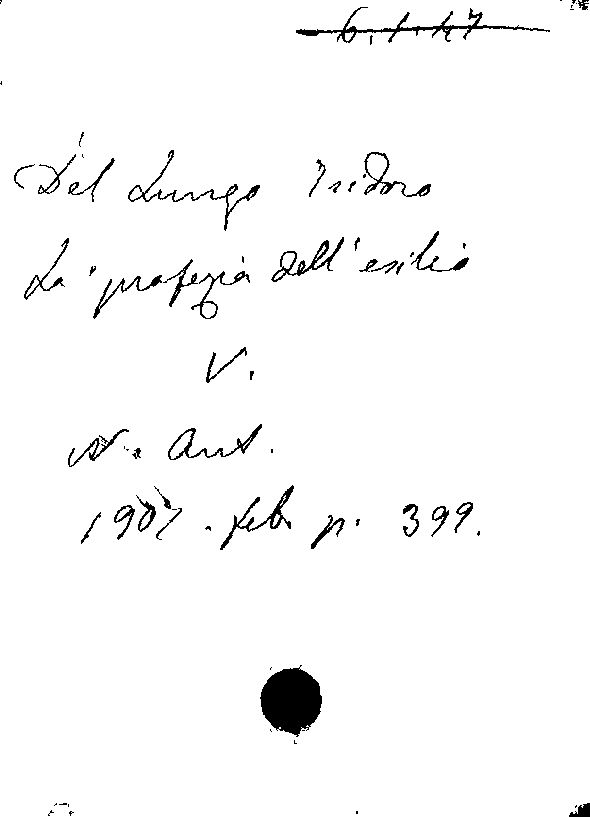 6.1.47
Del Lungo Isidoro
La profezia dell'esilio
V.
N. Ant.
1907. feb. p. 399.